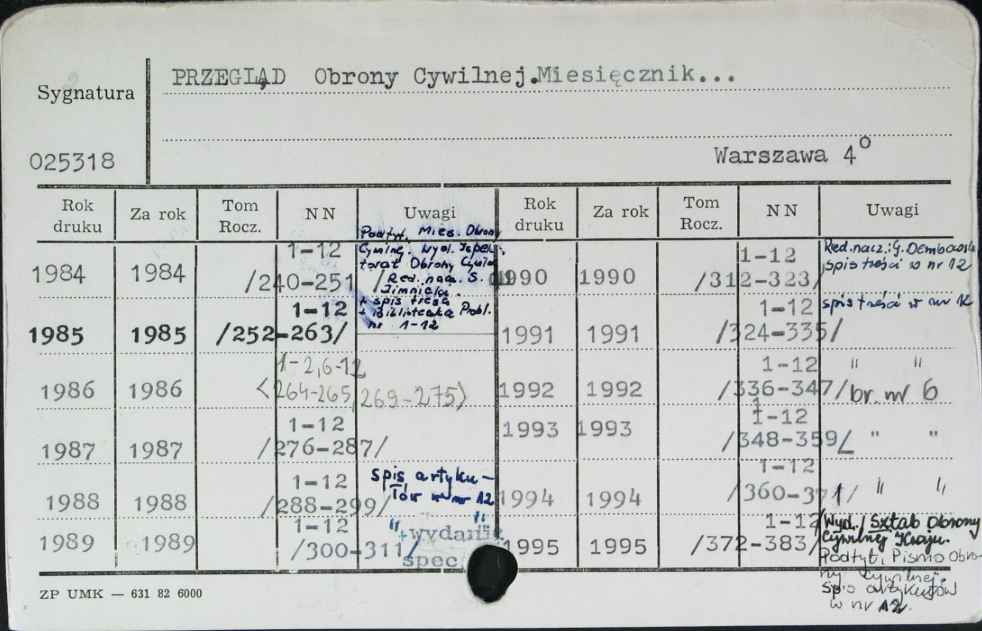 PRZEGLĄD Obrony Cywilnej. Miesięcznik...
Sygnatura
025318
Warszawa 4°
Rok druku Za rok Tom Rocz. NN Uwagi Rok druku Za rok Tom Rocz. NN Uwagi
1984 1984 1-12 /240-251/
Podtyt. Mies. Obrony
Cywilnej. Wyd. Inspek-
torat Obrony Cywiln.
Red. nacz. S.
+ spis treści
+ Biblioteczka Probl.
nr 1-12
1985 1985 1-12 /252-263/
1986 1986 1-2,6-12 <264-265, 269-275>
1987 1987 1-12 /276-287/
1988 1988 1-12 /288-299/ spis artyku-
łów w nr 12
1989 1989 1-12 /300-311/ " "
+wydanie
spec.
1990 1990 1-12 /312-323/ Red. nacz.: G. Dembowski
spis treści w nr 12
1991 1991 1-12 /324-335/ spis treści w nr 12
1992 1992 1-12 /336-347/ " "
br. nr 6
1993 1993 1-12 /348-359/ " "
1994 1994 1-12 /360-371/ " "
1995 1995 1-12 /372-383/ Wyd.: Sztab Obrony
Cywilnej Kraju.
Podtyt. Pismo Obro-
ny Cywilnej.
Spis artykułów
w nr 12.
ZP UMK — 631 82 6000